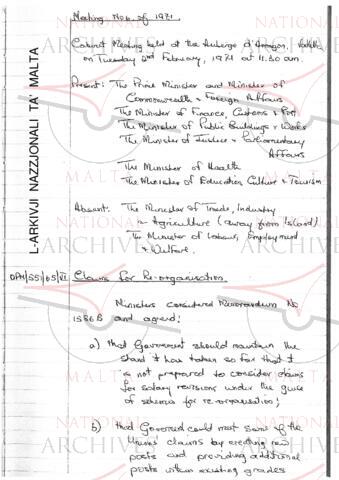 Meeting No 6 of 1971
Cabinet Meeting held at the Auberge d'Aragon, Valletta
on Tuesday 2nd February, 1971 at 11.30 am.
Present: The Prime Minister and Minister of
Commonwealth & Foreign Affairs
The Minister of Finance, Customs & Port
The Minister of Public Buildings & Works
The Minister of Justice & Parliamentary
Affairs
The Minister of Health
The Minister of Education Culture & Tourism
Absent: The Minister of Trade, Industry
& Agriculture (away from Island)
The Minister of Labour, Employment
& Welfare.
OPM/551/65/VI Claims for Re-organisation
Ministers considered Memorandum No
1586B and agreed:
a) that Government should maintain the
stand it has taken so far that it
is not prepared to consider claims
for salary revisions under the guise
of schemes for re-organisation;
b) that Government could meet some of the
Unions' claims by creating new
posts and providing additional
posts within existing grades
L-ARKIVJI NAZZJONALI TA' MALTA
NATIONAL
ARCHIVES
MALTA